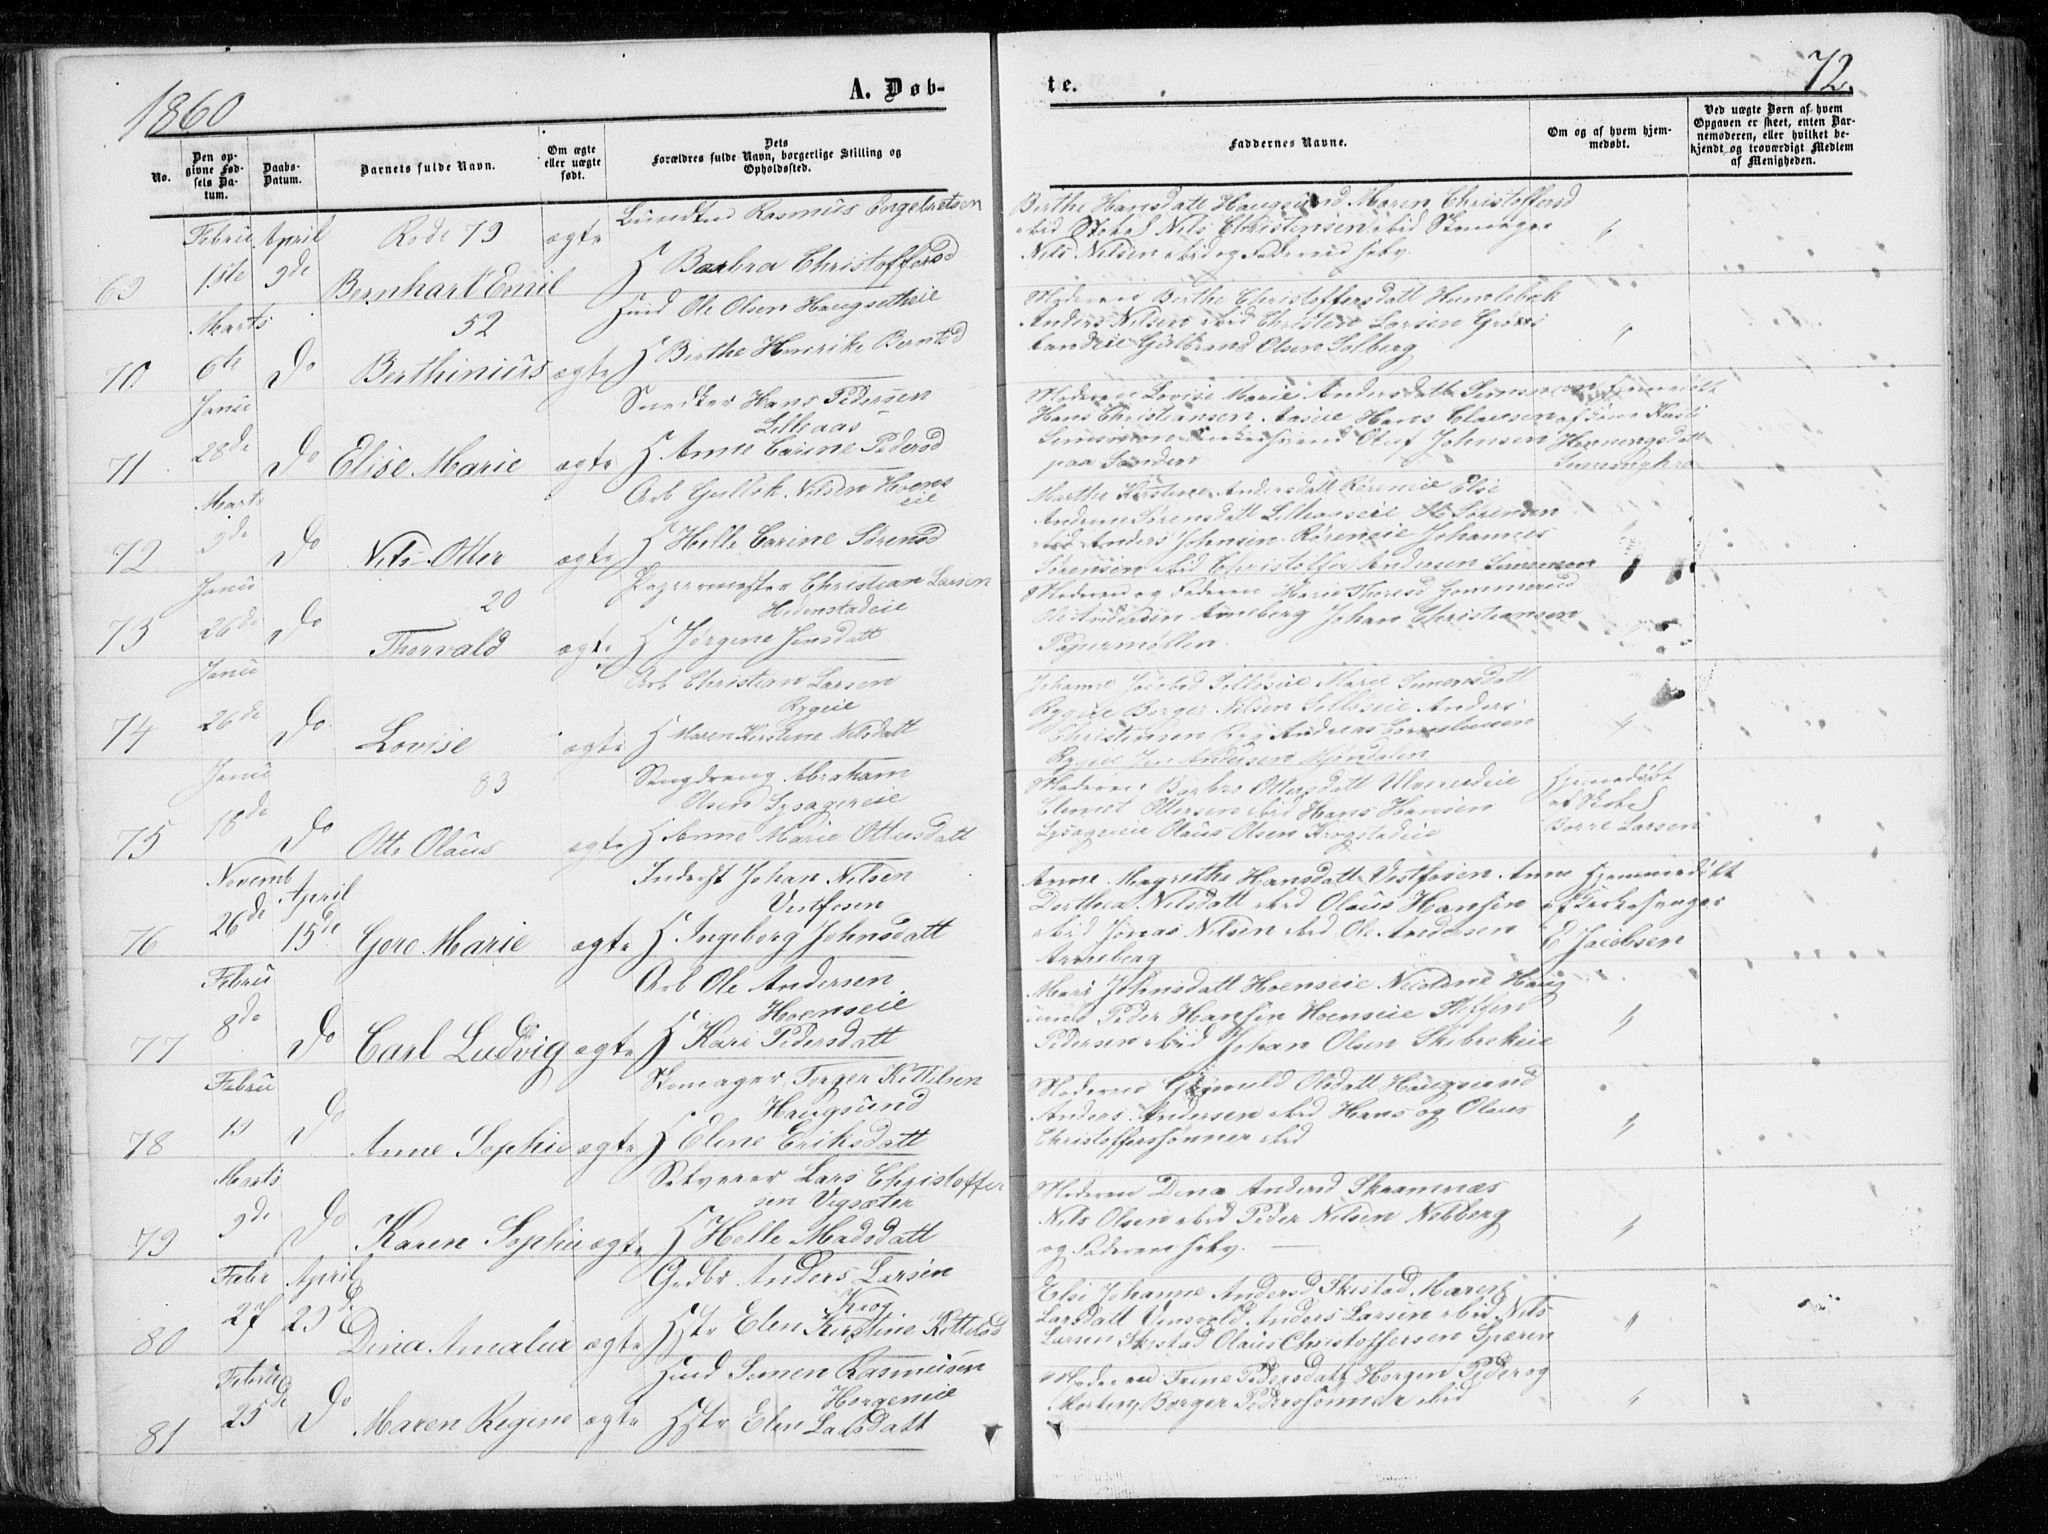 1860
A. Døb-
te.
72.
No.
Den op-
givne Fød-
sels Da-
tum.
Daabs-
Datum.
Barnets fulde Navn.
Om ægte
eller uægte
født.
Dets
Forældres fulde Navn, borgerlige Stilling og
Opholdssted.
Faddernes Navne.
Om og af hvem hjem-
medøbt.
Ved uægte Børn af hvem
Opgaven er skeet, enten Bar-
nemoderen, eller hvilket be-
kjendt og troværdigt Medlem
af Menigheden.
69
Febru
1ste
April
9de
Rode 79
Bernhart Emil
ægte
Rasmus Engebretsen
H Barbra Christoffersd
Birthe Hansdatt Haugsund Maren Christoffersd
ibid Nils Christensen ibid
Nils Nilsen ibid og Faderen selv.
"
70
Marts
6te
Do
52
Berthinius
ægte
Huud Ole Olsen Haugsetheie
H Birthe Henrike Berntsd
Moderen Birthe Christoffersdatt Humlebæk
Anders Nilsen ibid Christen Larsen
Gulbrand Olsen Solberg
"
71
Janu
28de
Do
Elise Marie
ægte
Snedker Hans Pedersen
Lilleaas
H Anne Carine Pedersd
Moderen Lovise Marie Andersdatt
Hans Christiansen Hans Clausen
Oluf Johnsen
paa Sanden
Henningsdatt
72
Marts
9de
Do
Nils Otter
ægte
Arb Gullik Nilsen Hoens
eie
H Helle Carine Sørensd
Marthe Kirstine Andersdatt Røreneie Else
Andrine Sørensdatt Ole Sørensen
ibid Anders Johnsen Røreneie Johannes
Sørensen ibid Christoffer Andersen
"
73
Janu
26de
Do
20
Thorvald
ægte
Papermester Christian Larsen
Hedenstadeie
H Jørgine Jensdatt
Moderen og Faderen Marie Thoresd
Ole Andersen Arneberg Johan Christiansen
Papermøllen.
74
Janu
26de
Do
Lovise
ægte
Arb Christian Larsen
Rygeie
H Maren Kirstine Nilsdatt
Johanne Jacobsd Marie Simensdatt
Rygeie Børger Nilsen Anders
Christensen Andreas
Rygeie Andersen Mjøndalen
"
75
Janu
18de
Do
83
Otto Olaus
ægte
Abraham
Olsen
H Anne Marie Ottersdatt
Moderen Barbro Ottersdatt
Clemet Ottersen ibid Hans Hansen
Olaus Olsen Krogstadeie
Hjemmedøbt
af
Børre Larsen
76
Novemb
26de
April
15de
Gore Marie
ægte
Inderst Johan Nilsen
Vestfosen
H Ingeborg Johnsdatt
Anne Magrethe Hansdatt Vestfosen Anne
Dorthea Nilsdatt ibid Olaus Hansen
ibid Jonas Nilsen ibid Ole Andersen
Arneberg
Hjemmedøbt
af Kirkesanger
E Jacobsen
77
Febru
8de
Do
Carl Ludvig
ægte
Arb Ole Andersen
Hoenseie
H Kari Pedersdatt
Mari Johnsdatt Hoenseie Nicoline Haug
sund Peder Hansen Hoenseie Steffen
Pedersen ibid Johan Olsen Skibrekeie
"
78
Febru
19
Do
Anne Sophie
ægte
Skomager Torger Kittilsen
Haugsund
H Eline Eriksdatt
Moderen Gunuld Olsdatt Haugsund
Anders Andersen ibid Hans og Olaus
Christofferssønner ibid
"
79
Marts
9de
Do
Karen Sophie
ægte
Selveier Lars Christoffer
sen Vegsæter
H Helle Madsdatt
Moderen Dina Andersd Skramnæs
Nils Olsen ibid Peder Nilsen Nebberg
og Faderen selv.
"
80
Febr
27
April
29de
Dina Amalia
ægte
Grdbr Anders Larsen
Krog
Hstr Elen Kirstine Kittelsd
Else Johanne Andersd Skistad Maren
Larsdatt Anders Larsen ibid Nils
Larsen Skistad Olaus Christoffersen
"
81
Febru
25de
Do
Maren Regine
ægte
Huud Simen Rasmussen
Horgeneie
Hstr Elen Larsdatt
Moderen Trine Pedersdatt Horgen Peder og
Morten, Borger Pederssønner ibid
"